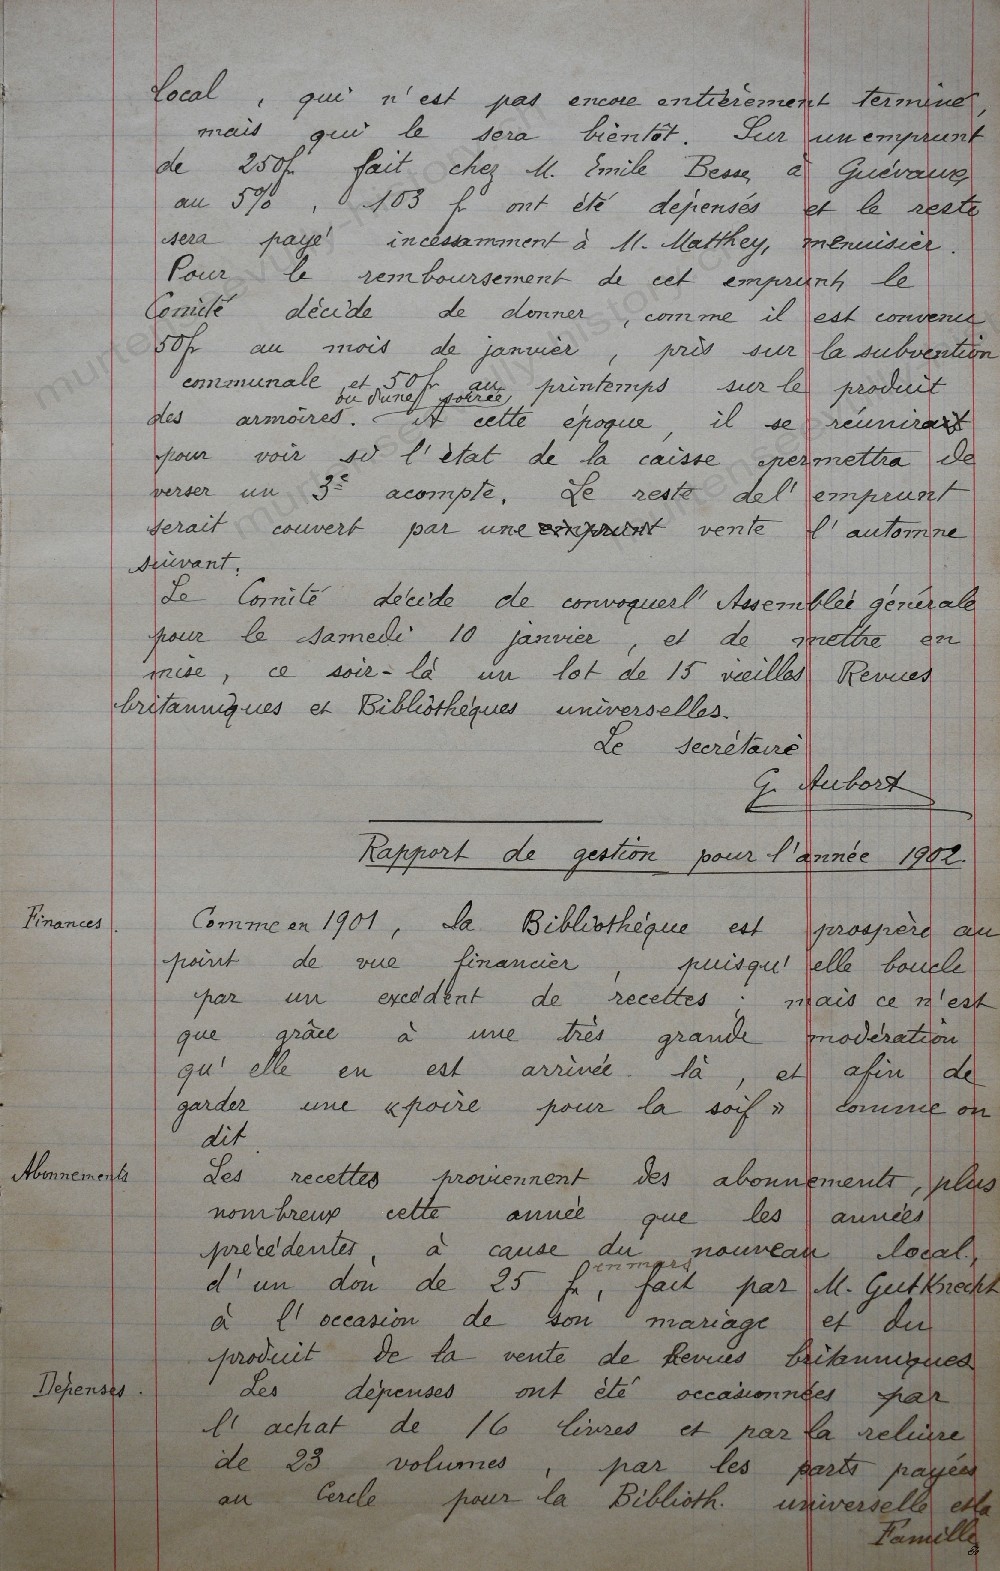 local, qui n'est pas encore entièrement terminé,
mais qui le sera bientôt. Sur un emprunt
de 250 f. fait chez M. Emile Besse, à Guévaux,
au 5%, 103 f ont été dépensés et le reste
sera payé incessamment à M. Matthey, menuisier.
Pour le remboursement de cet emprunt, le
Comité décide de donner, comme il est convenu
50 fr au mois de janvier, pris sur la subvention
communale, et 50 fr au printemps sur le produit
ou d'une soirée
des armoires. A cette époque, il se réunirait
pour voir si l'état de la caisse permettra de
verser un 3e acompte. Le reste de l'emprunt
serait couvert par une emprunt vente l'automne
suivant.
Le Comité décide de convoquer l'Assemblée générale
pour le samedi 10 janvier, et de mettre en
mise, ce soir-là un lot de 15 vieilles Revues
britanniques et Bibliothèques universelles.
Le secrétaire
G. Aubort
Rapport de gestion pour l'année 1902.
Finances. Comme en 1901, la Bibliothèque est prospère au
point de vue financier, puisqu'elle boucle
par un excédent de recettes; mais ce n'est
que grâce à une très grande modération
qu'elle en est arrivée là, et afin de
garder une «poire pour la soif» comme on
dit.
Abonnements Les recettes proviennent des abonnements, plus
nombreux cette année que les années
précédentes, à cause du nouveau local,
en mars
d'un don de 25 fr, fait par M. Gutknecht
à l'occasion de son mariage et du
produit de la vente de Revues britanniques
Dépenses. Les dépenses ont été occasionnées par
l'achat de 16 livres et par la reliure
de 23 volumes, par les parts payées
au Cercle pour la Biblioth. universelle et la
Famille